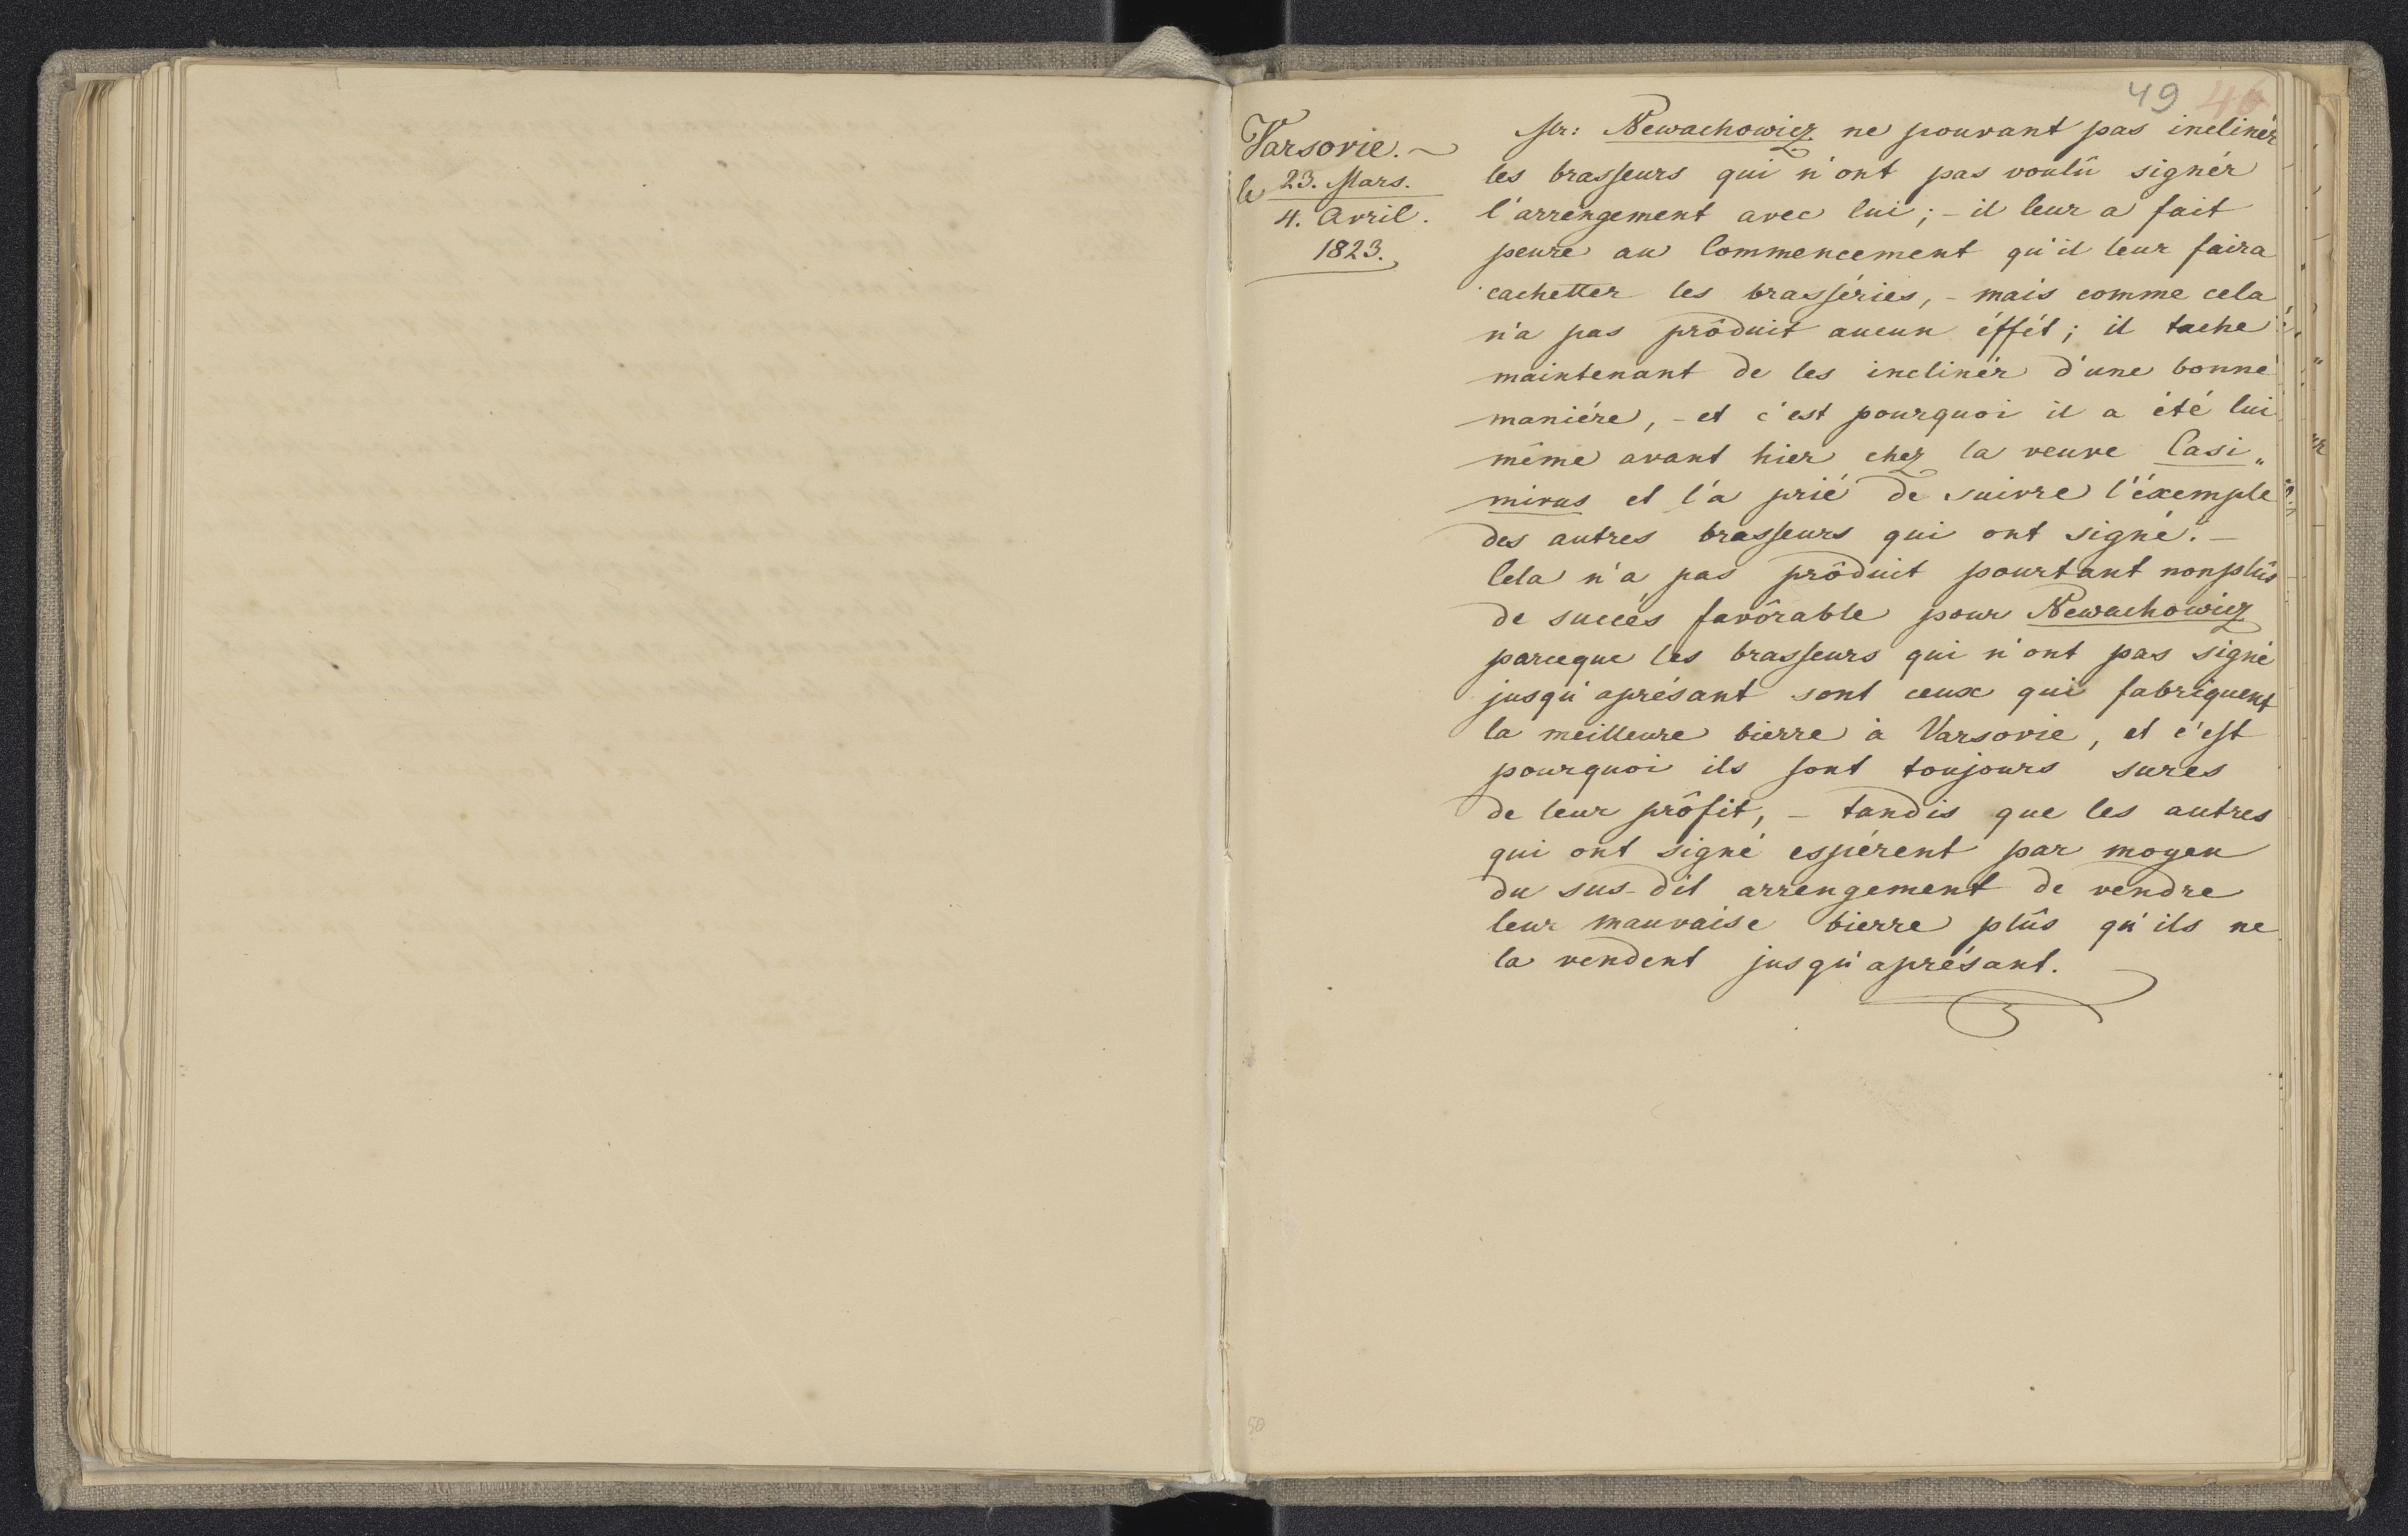 49 46
Varsovie. ~
le 23. Mars.
4. Avril.
1823.
Mr: Newachowicz ne pouvant pas inclinér
les brasseurs qui n'ont pas voulû signér
l'arrengement avec lui; - il leur a fait
peure au Commencement qu'il leur faira
cachetter les brasséries, - mais comme cela
n'a pas prôduit aucun éffét; il tache
maintenant de les inclinér d'une bonne
maniére, - et c'est pourquoi il a été lui
même avant hier chez la veuve Casi„
mirus et l'a prié de suivre l'éxemple
des autres brasseurs qui ont signé. -
Cela n'a pas prôduit pourtant nonplûs
de succés favôrable pour Newachowicz
parceque les brasseurs qui n'ont pas signé
jusqu'aprésant sont ceux qui fabriquent
la meilleure bierre à Varsovie, et c'est
pourquoi ils sont toujours sures
de leur prôfit, - tandis que les autres
qui ont signé espérent par moyen
du sus-dit arrengement de vendre
leur mauvaise bierre plûs qu'ils ne
la vendent jusqu'aprésant.
50